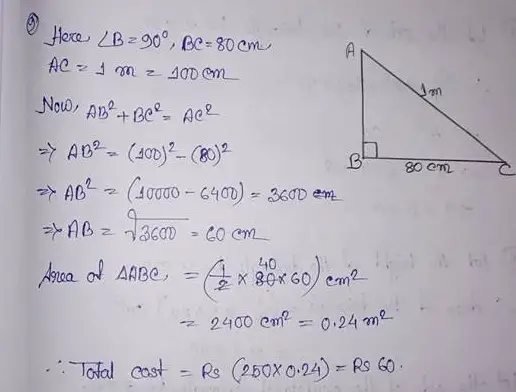 9)
Here ∠B = 90°, BC = 80 cm,
AC = 1 m = 100 cm
Now, AB² + BC² = AC²
⇒ AB² = (100)² - (80)²
⇒ AB² = (10000 - 6400) = 3600 cm
⇒ AB = √3600 = 60 cm
Area of △ABC, = (1/2 × 80 × 60) cm²
40
= 2400 cm² = 0.24 m²
∴ Total cost = Rs (250×0.24) = Rs 60.
A
1m
B
80 cm
C